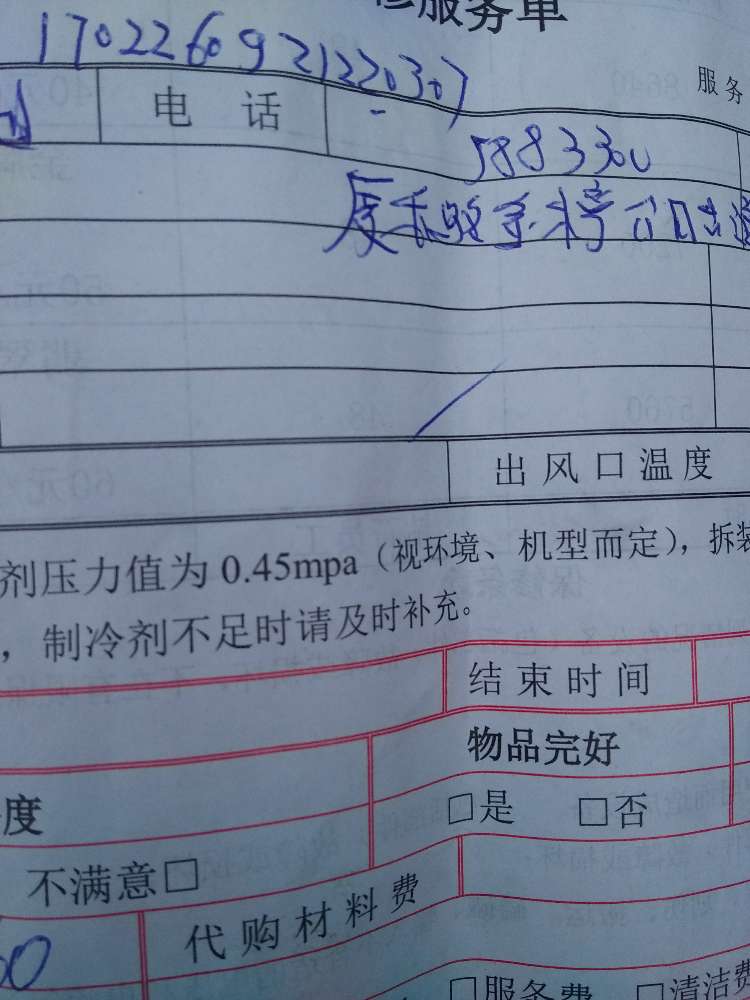 修服务单
17022609212220307
服务
电 话
-
5883300
出风口温度
剂压力值为0.45mpa（视环境、机型而定），拆装
，制冷剂不足时请及时补充。
结束时间
物品完好
度
□是 □否
不满意□
代购材料费
□服务费 □清洁费